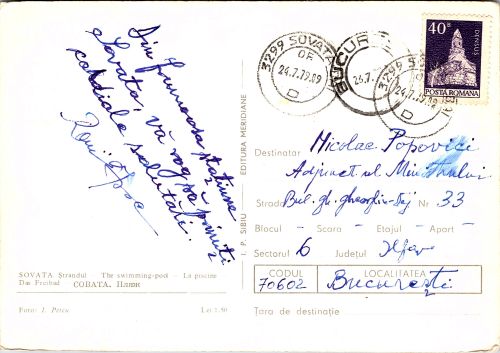 Din frumoasa stațiune
Sovata, vă rog să primiți
cordiale salutări.
SOVATA Ștrandul The swimming-pool — La piscine
Das Freibad СОВАТА. Пляж
Foto: I. Petcu
Lei 1.50
I. P. SIBIU EDITURA MERIDIANE
3299 SOVATA
OF.
24.7.79.09
D
BUCUR
24.7.
3299 S
24.7.79.09
D
40B
DENSUȘ
POȘTA ROMANA
Destinatar Nicolae Popovici
Adjunct al Ministrului
Strada Bul. gh. gheorghiu-Dej Nr 33
Blocul - Scara - Etajul - Apart -
Sectorul 6 Județul Ilfov
CODUL LOCALITATEA
70602 București
Țara de destinație